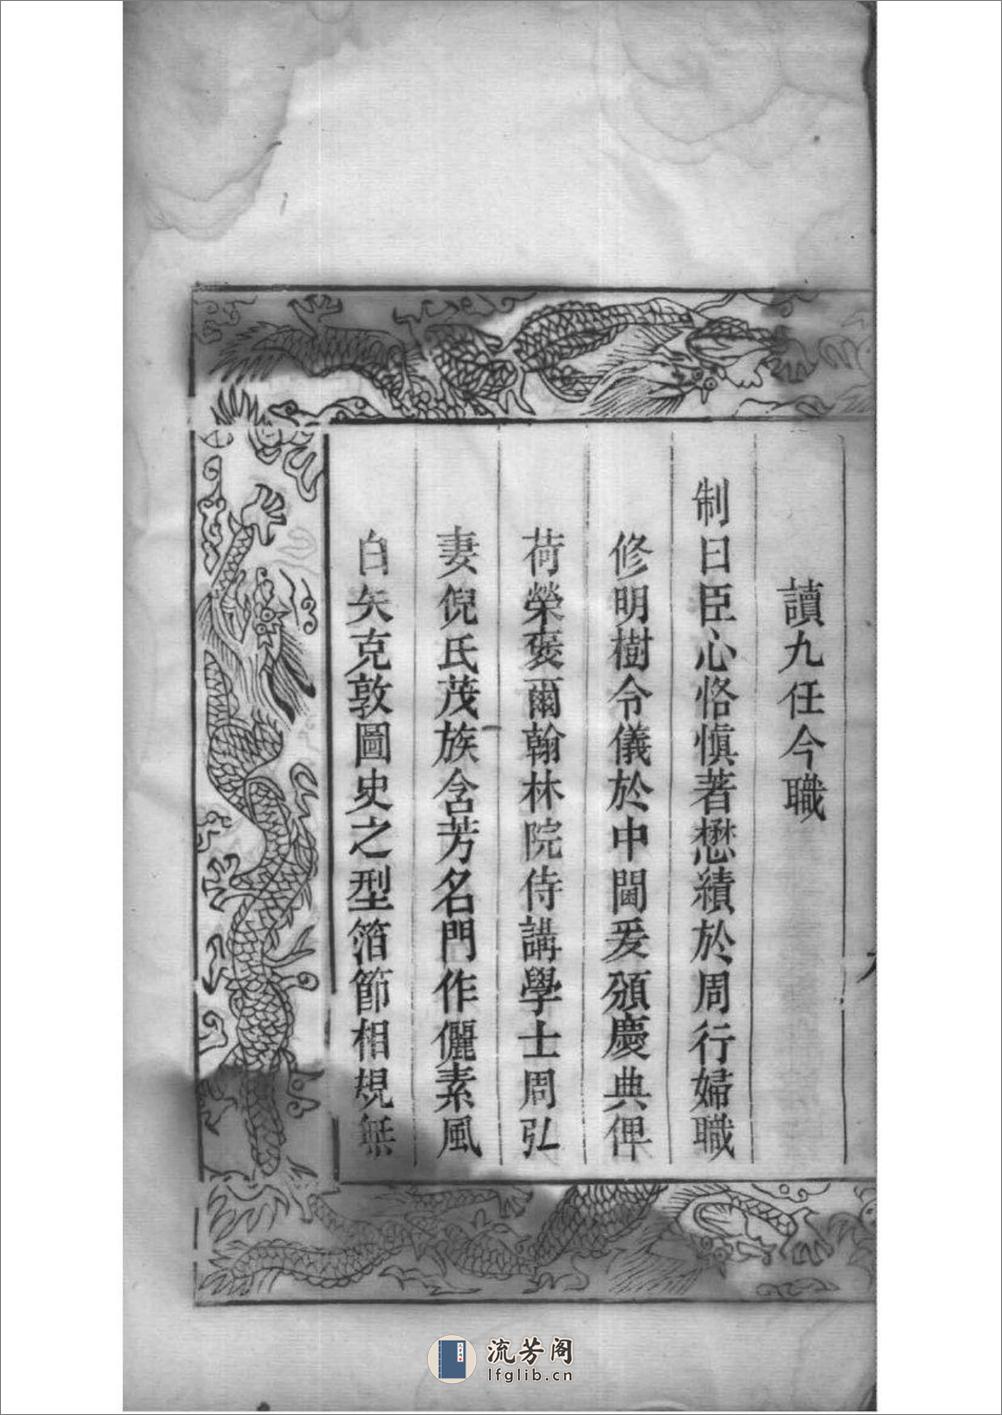 讀九任今職
制曰臣心恪愼著懋績於周行婦職
修明樹令儀於中閫爰頒慶典俾
荷榮褒爾翰林院侍講學士周弘
妻倪氏茂族含芳名門作儷素風
自矢克敦圖史之型箔節相規無
流芳阁
lfglib.cn